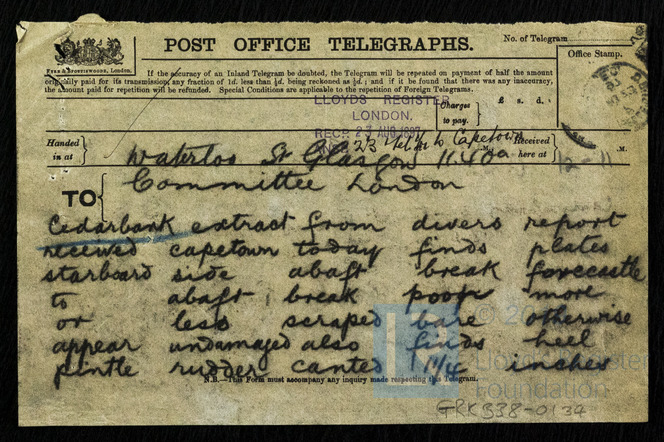 POST OFFICE TELEGRAPHS.
No. of Telegram
Office Stamp.
EYRE & SPOTTISWOODE, London.
If the accuracy of an Inland Telegram be doubted, the Telegram will be repeated on payment of half the amount
originally paid for its transmission, any fraction of 1d. less than ½d. being reckoned as ½d.; and if it be found that there was any inaccuracy,
the amount paid for repetition will be refunded. Special Conditions are applicable to the repetition of Foreign Telegrams.
LLOYDS REGISTER
LONDON.
RECD 27 AUG 1897
Charges
to pay.
£ s. d.
to Capetown
Handed
in at
Waterloo St Glasgow 11.40a
Received
here at
12-11
M.
TO
Committee London
Cedarbank extract from divers report
received capetown today finds plates
starboard side abaft break forecastle
to abaft break poop more
or less scraped bare otherwise
appear undamaged also finds heel
pintle rudder canted 1¼ inches
N.B.—This Form must accompany any inquiry made respecting this Telegram.
GRK338-0134
©
Foundation